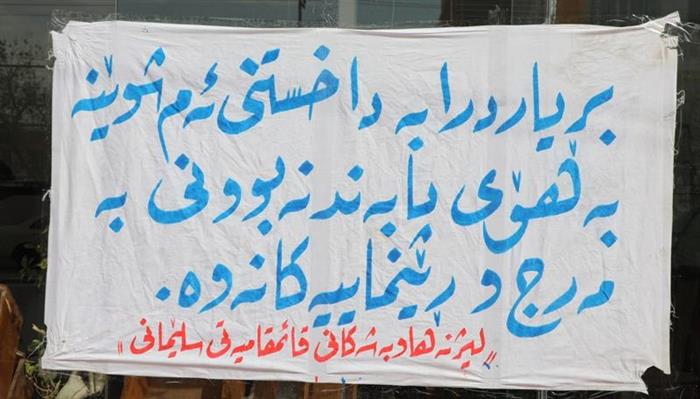 بریار درا بە داخستنی ئەم شوێنە
بە هۆی پابەند نەبوونی بە
مەرج و رێنماییەکانەوە.
"لیژنە هاوبەشەکانی قائمقامیەتی سلێمانی"